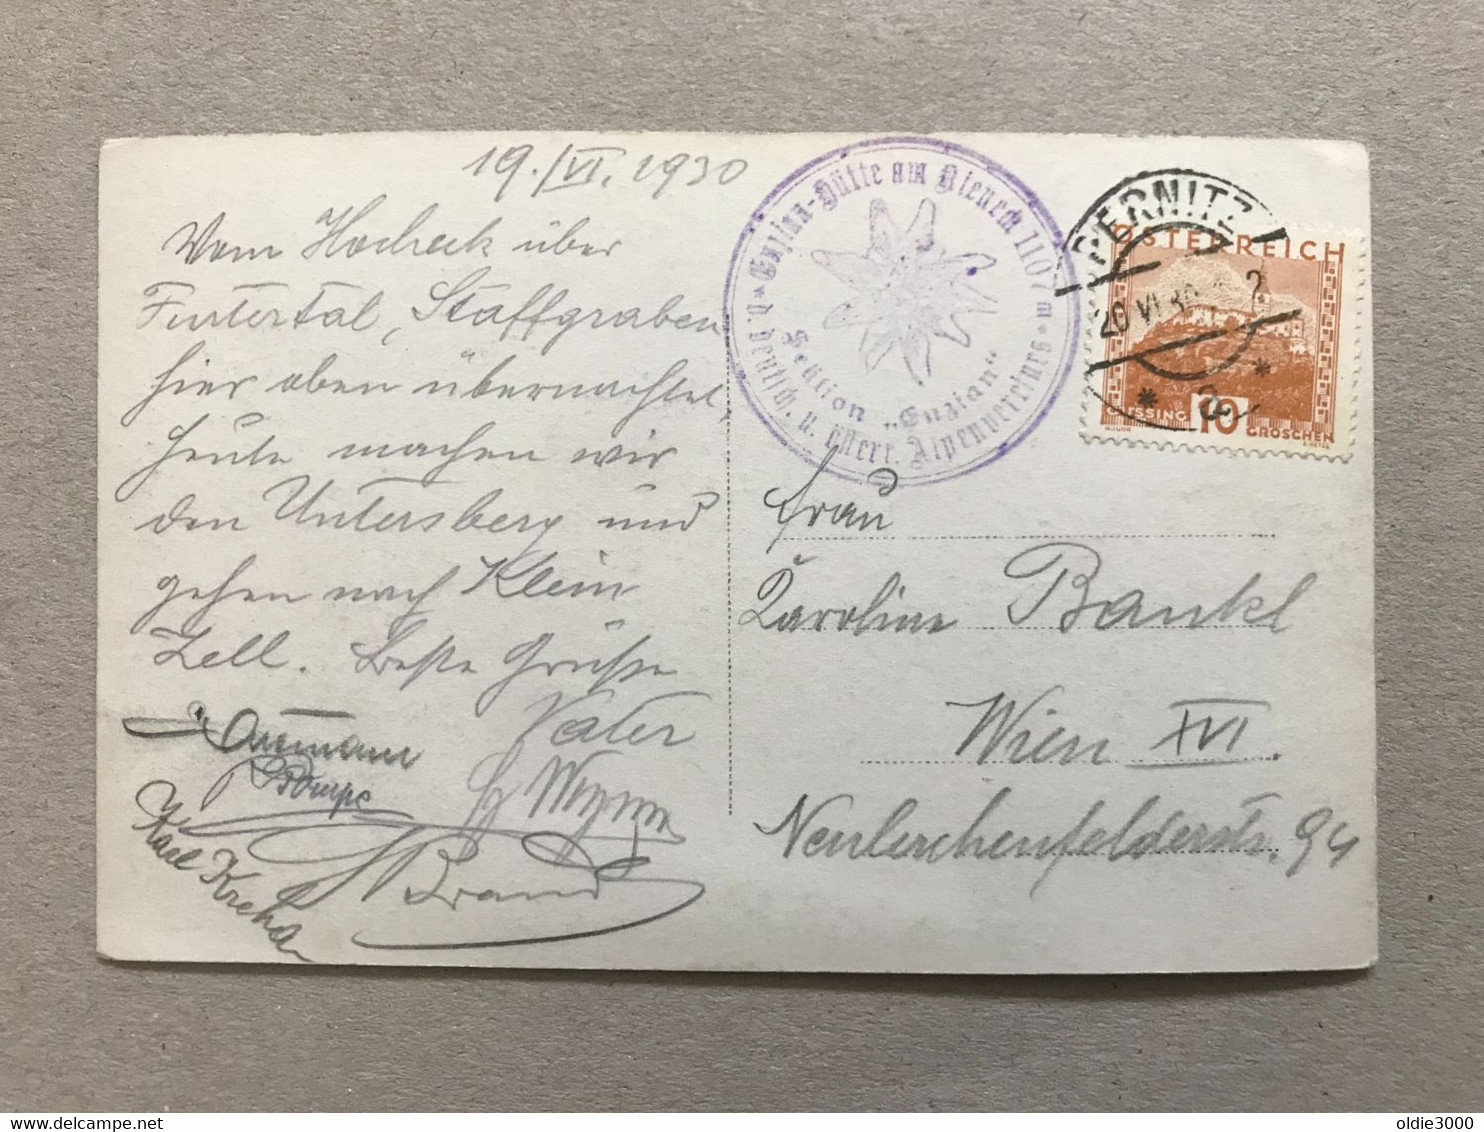 19./VI. 1930
Vom Hocheck über
Furtertal, Staffgraben
hier oben übernachtet,
heute machen wir
den Untersberg und
gehen nach Klein
Zell. Beste Grüße
Vater
Karl Krcha
Brand
"Enzian-Hütte am Kieneck 1107 m"
d. deutsch. u. österr. Alpenvereines
Sektion „Enzian“
PERNITZ
20 VI 30
2
* a *
ÖSTERREICH
GÜSSING 10 GROSCHEN
Frau
Karoline Bankl
Wien XVI.
Neulerchenfelderstr. 94
oldie3000